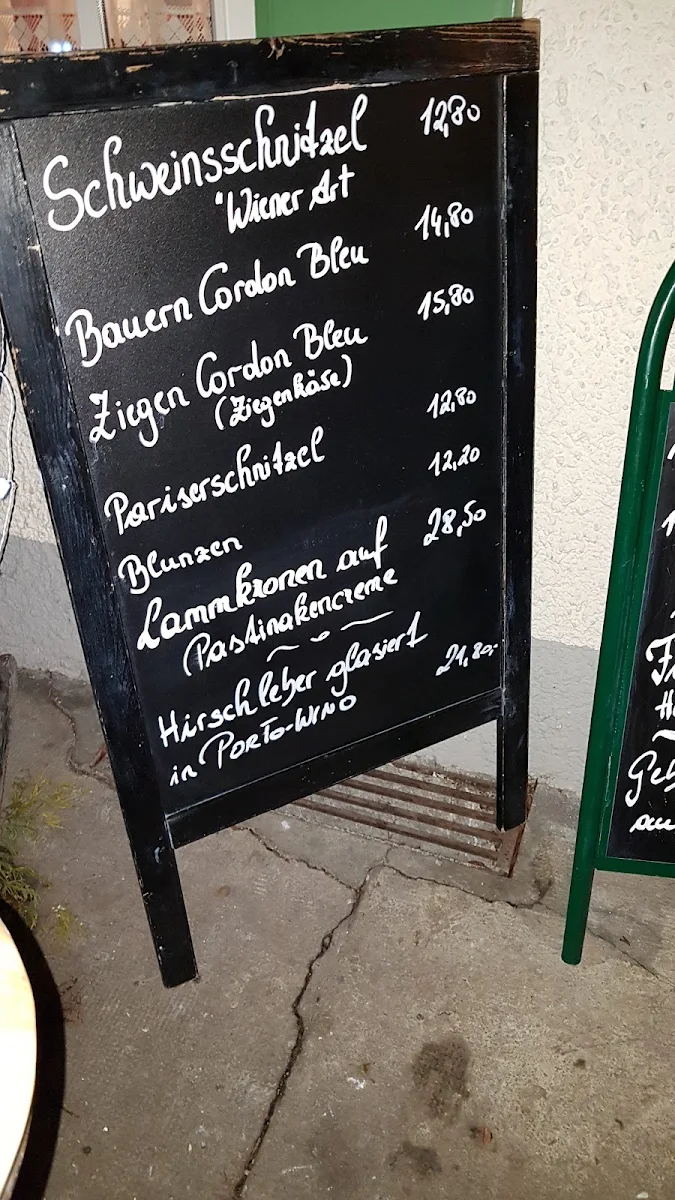 Schweinsschnitzel 12,80
"Wiener Art
Bauern Cordon Bleu 14,80
Ziegen Cordon Bleu 15,80
(Ziegenkäse)
Pariserschnitzel 12,80
Blunzen 12,20
Lammkronen auf 28,50
Pastinakencreme
Hirschleber glasiert 21,80.-
in PORTO-WINO